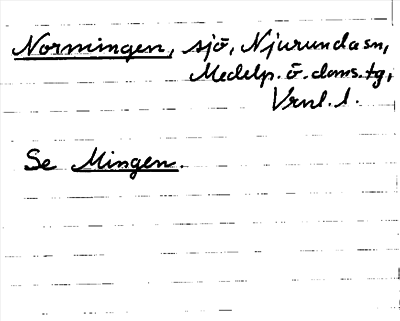 Normingen, sjö, Njurunda sn,
Medelp. ö. doms. tg,
Vrnl. l.
Se Mingen.